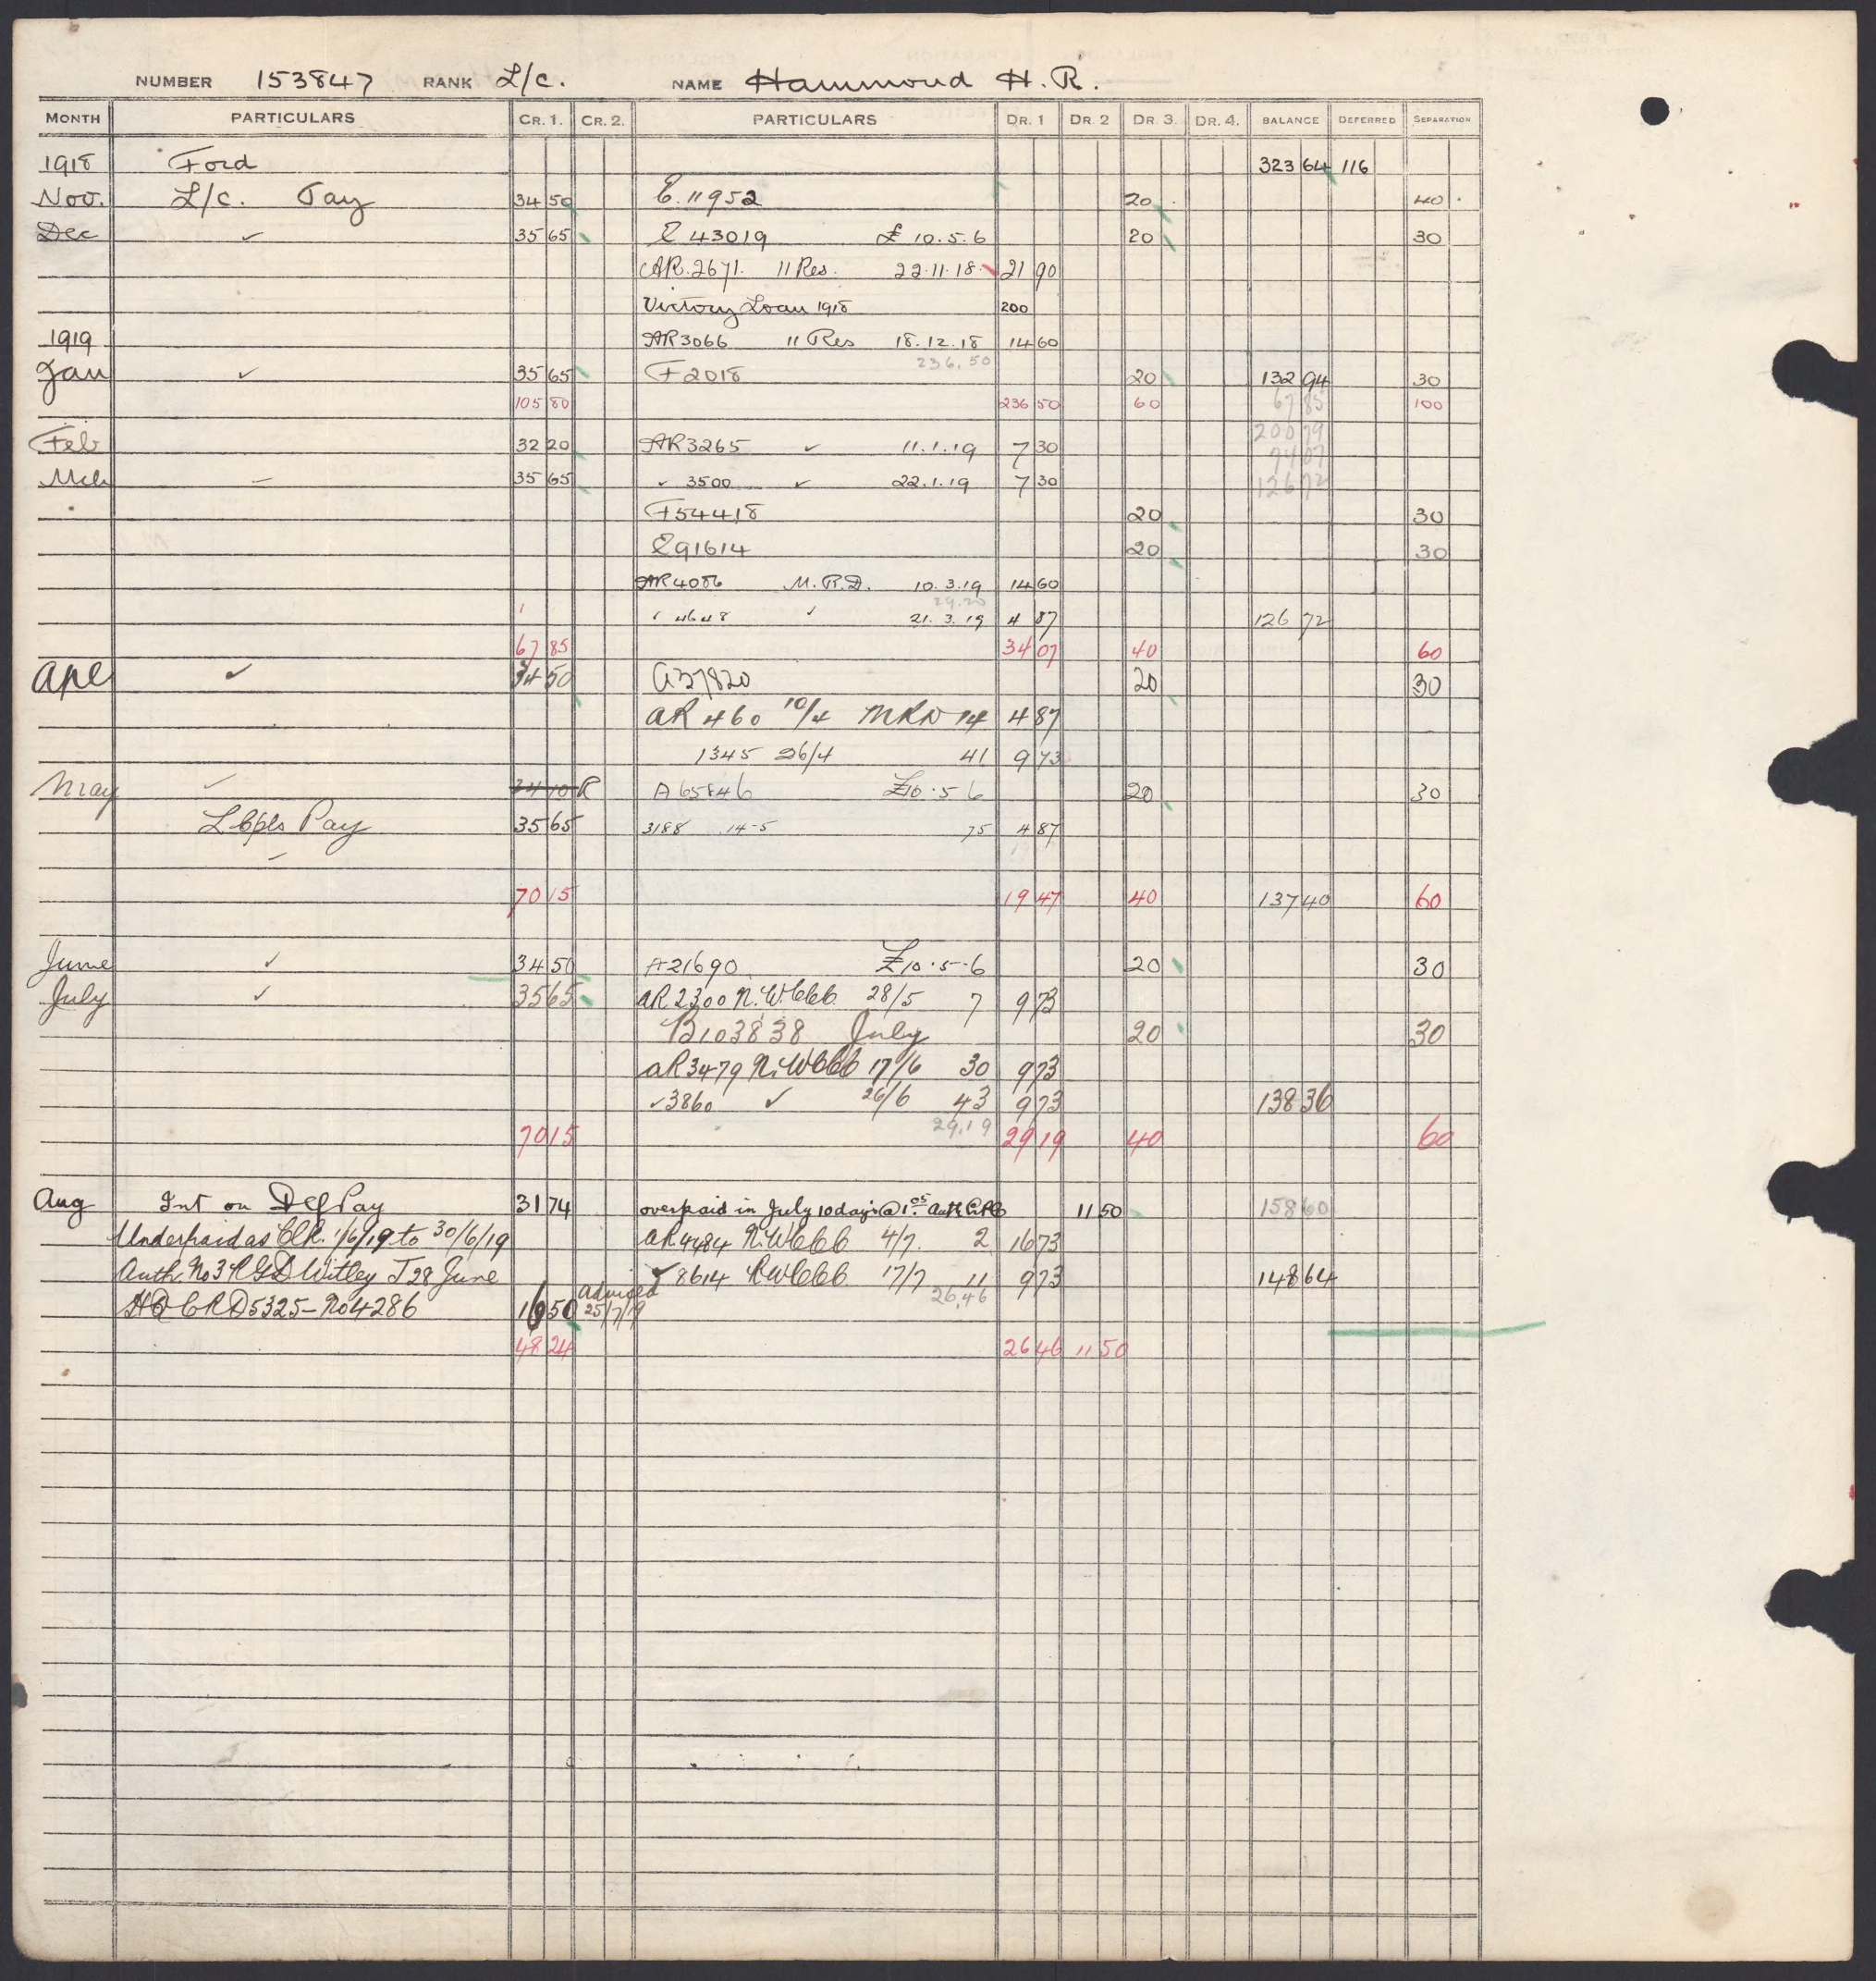 NUMBER 153847 RANK L/c. NAME Hammond H. R.
MONTH PARTICULARS CR. 1. CR. 2. PARTICULARS DR. 1 DR. 2 DR. 3. DR. 4. BALANCE DEFERRED SEPARATION
1918 Ford 323 64 116
Nov. L/c. Pay 34 50 E. 11952 20 40
Dec ✓ 35 65 E 43019 £ 10.5.6 20 30
AR. 2671. 11 Res. 22.11.18. 21 90
Victory Loan 1918 200
1919 AR3066 11 Res 18.12.18 14 60
236.50
Jan ✓ 35 65 F2018 20 132 94 30
105 80 236 50 60 67 85 100
200 79
Feb 32 20 AR3265 ✓ 11.1.19 7 30 74 07
Mch – 35 65 ✓ 3500 ✓ 22.1.19 7 30 126 72
F54418 20 30
E91614 20 30
AR4086 M.R.D. 10.3.19 14 60
29.20
✓ 4648 ✓ 21.3.19 4 87 126 72
67 85 34 07 40 60
Apl ✓ 34 50 A37820 20 30
AR 460 10/4 MRD 14 4 87
1345 26/4 41 9 73
May ✓ 34 10 R A 65846 £10.5.6 20 30
L Cpls Pay 35 65 3188 14-5 75 4 87
–
70 15 19 47 40 137 40 60
June ✓ 34 50 A21690 £10.5.6 20 30
July ✓ 35 65 AR 2300 N.W. 28/5 7 9 73
B103838 July 20 30
AR3479 17/6 30 9 73
✓ 3860 ✓ 26/6 43 9 73 138 36
29.19
70 15 29 19 40 60
Aug Int on Def Pay 31 74 overpaid in July 10 days @ 1.05 11 50 158 60
Underpaid as Clk. 1/6/19 to 30/6/19 AR4484 4/7. 2 16 73
Auth. No 3 R G D Witley J 28 June ✓ 8614 17/7 11 9 73 148 64
26.46
HQ CRD5325 – No 4286 16 50 advised 25/7/19
48 24 26 46 11 50